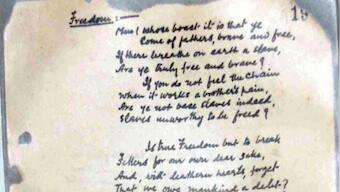 19
Freedom: —
Men! whose boast it is that ye
Come of fathers, brave and free,
If there breathe on earth a slave,
Are ye truly free and brave?
If you do not feel the chain
When it works a brother's pain,
Are ye not base slaves indeed,
Slaves unworthy to be freed?
Is true Freedom but to break
Fetters for our own dear sake,
And, with leathern hearts, forget
That we owe mankind a debt?